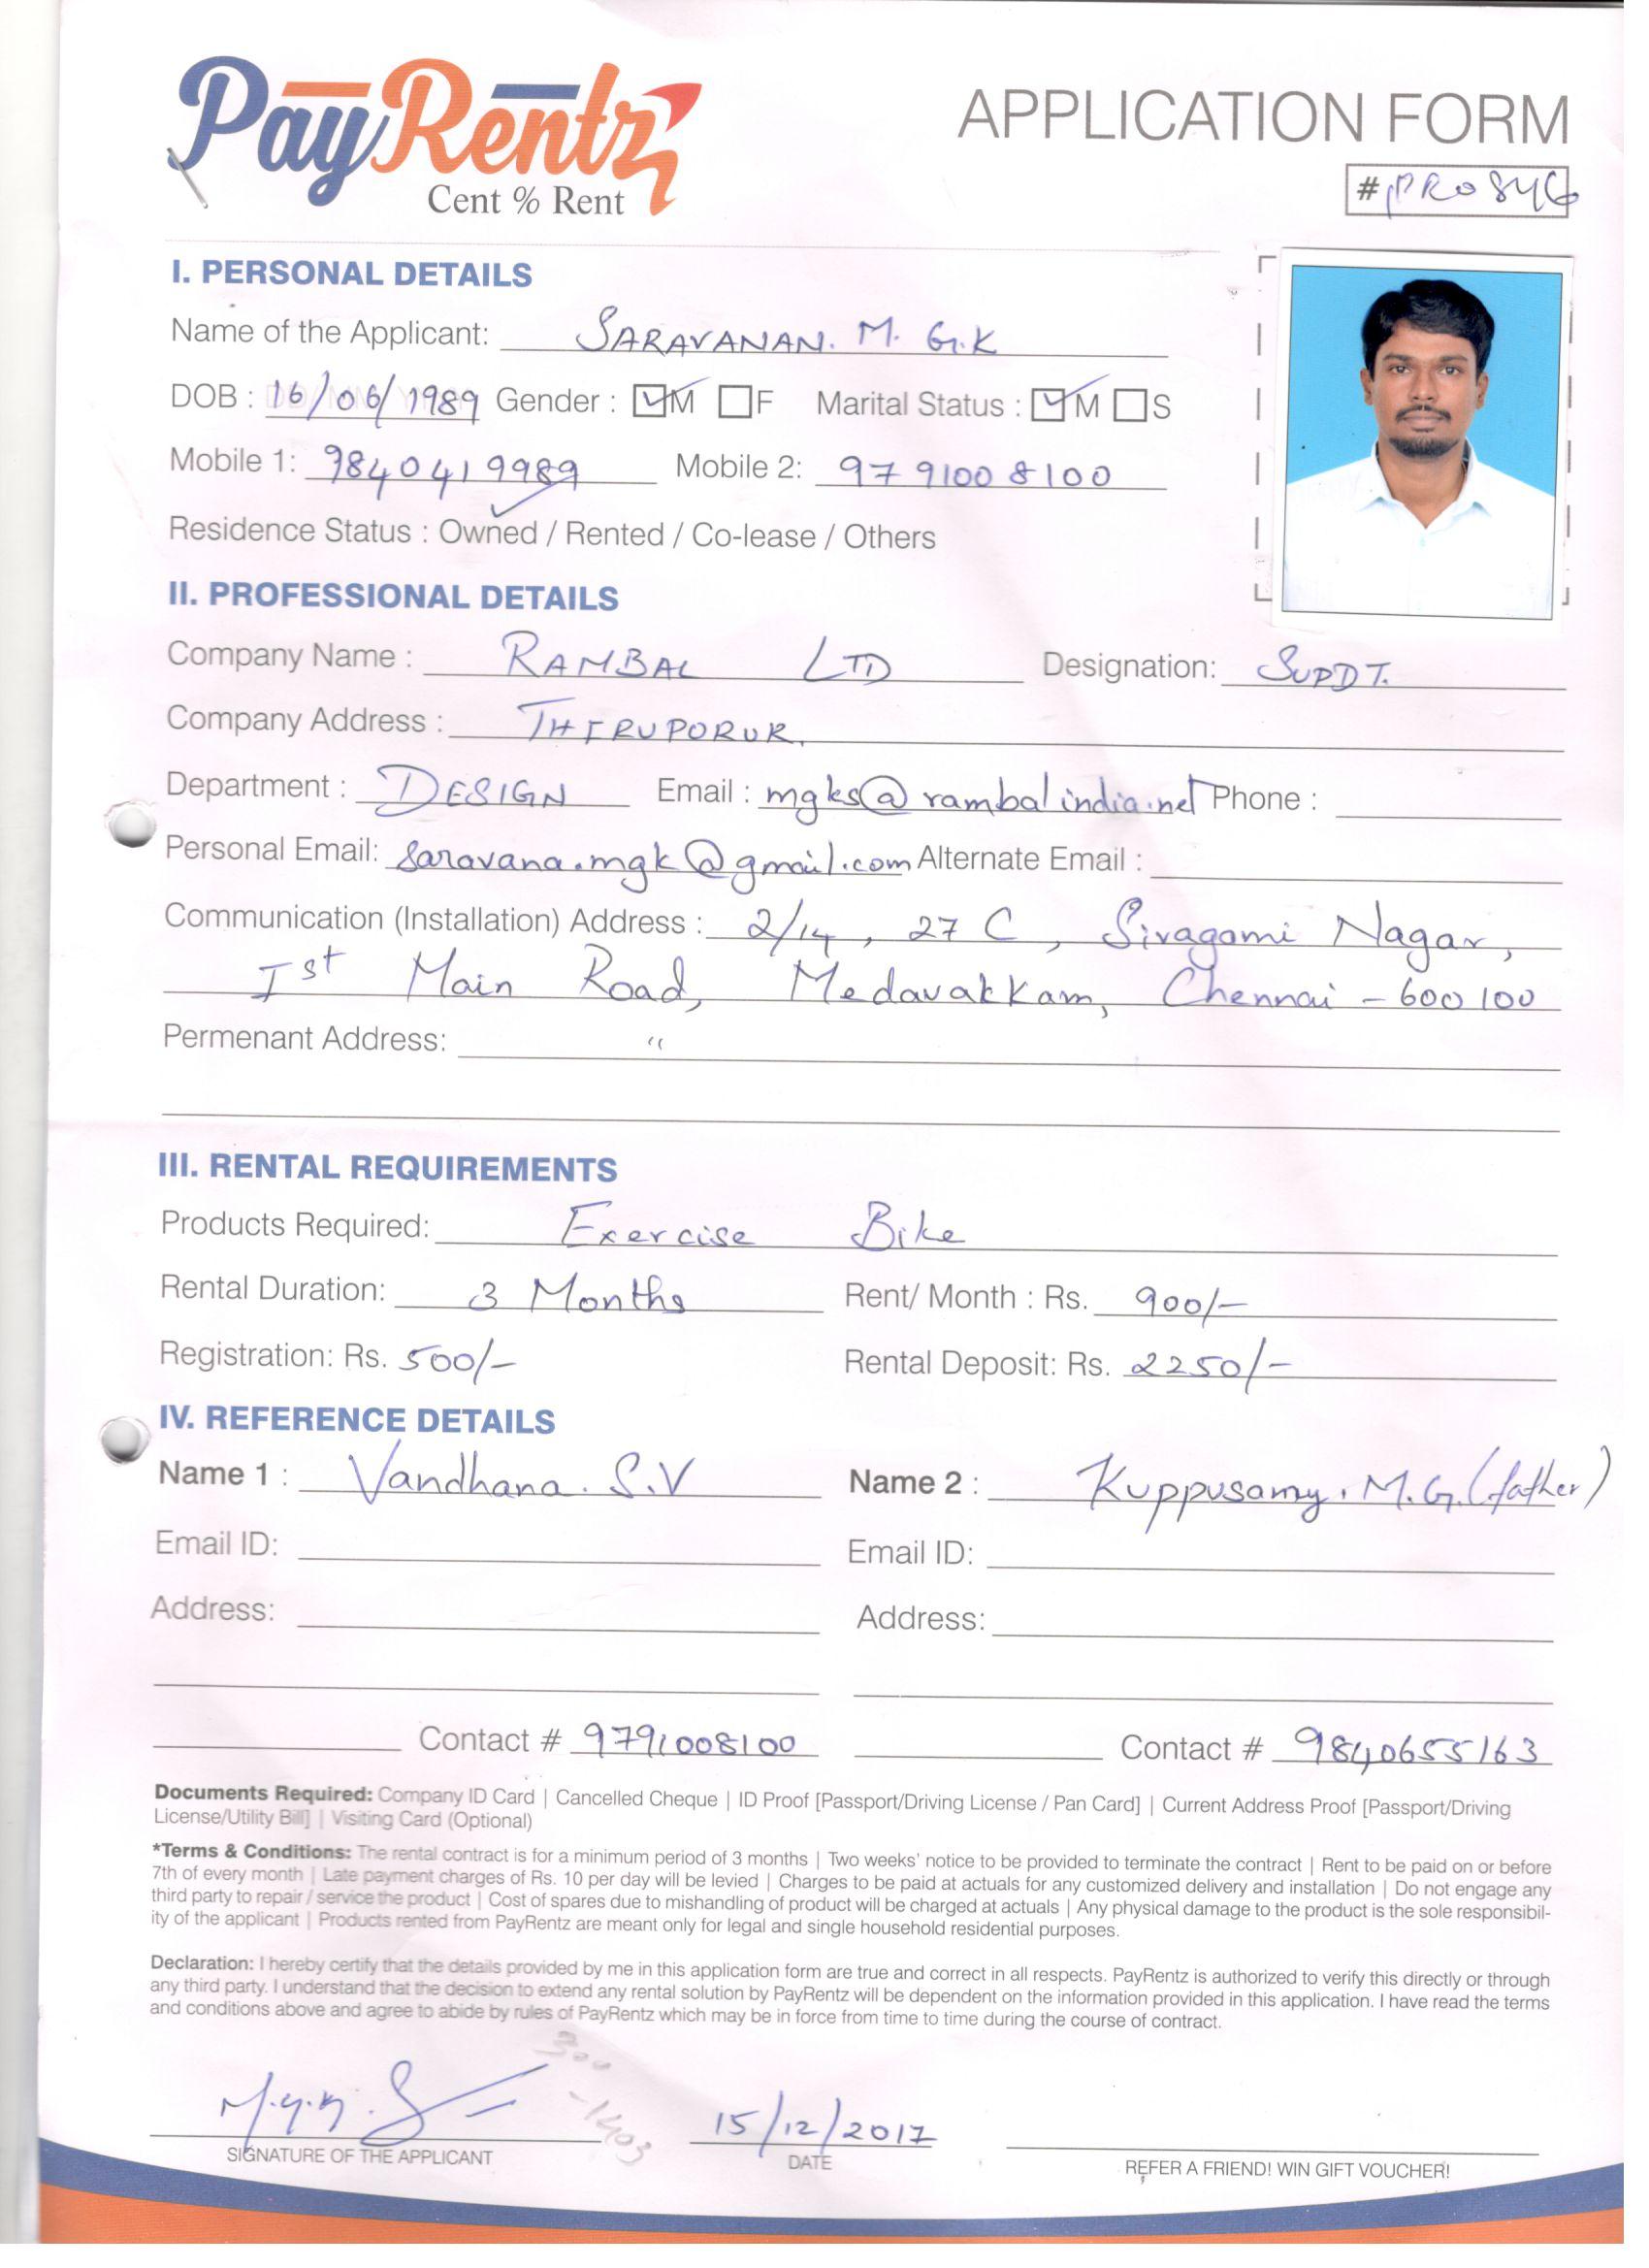 PayRentz
Cent % Rent
APPLICATION FORM
#PRO846
I. PERSONAL DETAILS
Name of the Applicant: SARAVANAN. M. G.K
DOB : 16/06/1989 Gender : M F Marital Status : M S
Mobile 1: 9840419989 Mobile 2: 9791008100
Residence Status : Owned / Rented / Co-lease / Others
II. PROFESSIONAL DETAILS
Company Name : RAMBAL LTD Designation: SUPDT.
Company Address : THIRUPORUR.
Department : DESIGN Email : mgks@rambalindia.net Phone :
Personal Email: saravana.mgk@gmail.com Alternate Email :
Communication (Installation) Address : 2/14, 27 C, Sivagami Nagar,
Ist Main Road, Medavakkam, Chennai - 600100
Permenant Address: "
III. RENTAL REQUIREMENTS
Products Required: Exercise Bike
Rental Duration: 3 Months Rent/ Month : Rs. 900/-
Registration: Rs. 500/- Rental Deposit: Rs. 2250/-
IV. REFERENCE DETAILS
Name 1 : Vandhana. S.V Name 2 : Kuppusamy. M.G. (father)
Email ID: Email ID:
Address: Address:
Contact # 9791008100 Contact # 9840655163
Documents Required: Company ID Card | Cancelled Cheque | ID Proof [Passport/Driving License / Pan Card] | Current Address Proof [Passport/Driving
License/Utility Bill] | Visiting Card (Optional)
*Terms & Conditions: The rental contract is for a minimum period of 3 months | Two weeks' notice to be provided to terminate the contract | Rent to be paid on or before
7th of every month | Late payment charges of Rs. 10 per day will be levied | Charges to be paid at actuals for any customized delivery and installation | Do not engage any
third party to repair / service the product | Cost of spares due to mishandling of product will be charged at actuals | Any physical damage to the product is the sole responsibil-
ity of the applicant | Products rented from PayRentz are meant only for legal and single household residential purposes.
Declaration: I hereby certify that the details provided by me in this application form are true and correct in all respects. PayRentz is authorized to verify this directly or through
any third party. I understand that the decision to extend any rental solution by PayRentz will be dependent on the information provided in this application. I have read the terms
and conditions above and agree to abide by rules of PayRentz which may be in force from time to time during the course of contract.
300
-1403
M.G.K. S
15/12/2017
SIGNATURE OF THE APPLICANT DATE REFER A FRIEND! WIN GIFT VOUCHER!